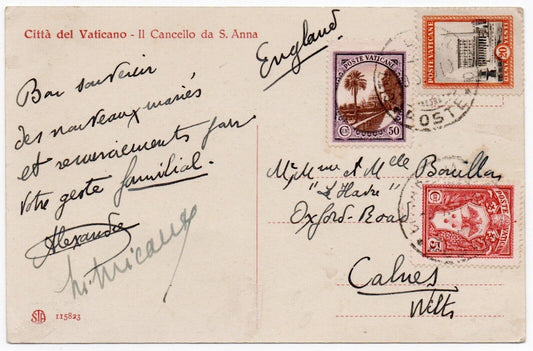 Città del Vaticano - Il Cancello da S. Anna
England
Bon souvenir
des nouveaux mariés
et remerciements pour
votre geste familial.
Alexandre
POSTE VATICANE
50
CENT.
VENTI
20
POSTE
Mr Mme et Melle
"L'Havre"
Oxford-Road
Calnes
Wilts
POSTE
5
STA 115823